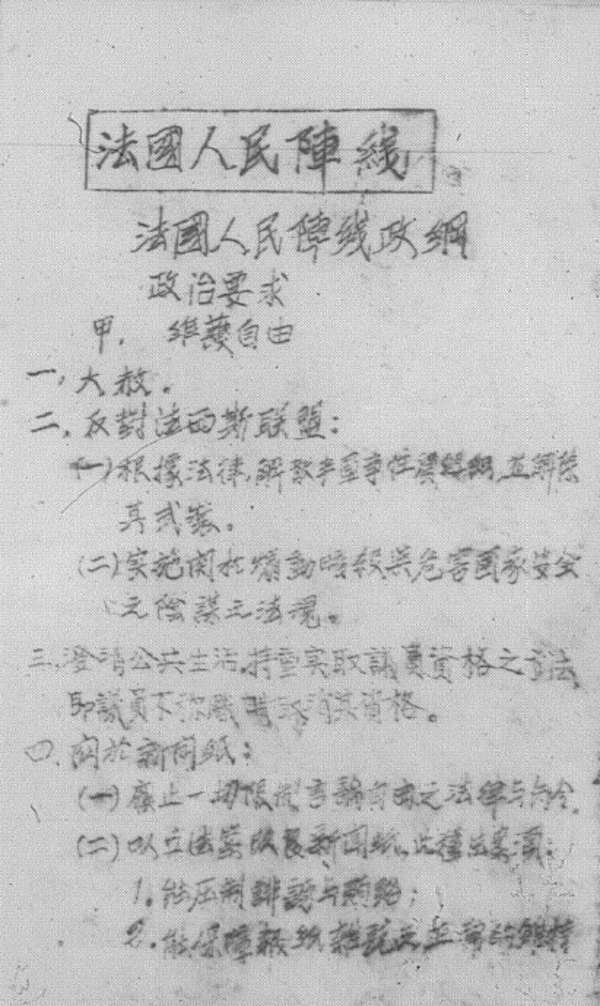 法國人民陣綫
法國人民陣綫政綱
政治要求
甲. 維護自由
一、大赦。
二、反對法西斯联盟:
(一)根據法律,解散半軍事性質組織,並解除
其武裝。
(二)实施関於煽動暗殺與危害國家安全
之陰謀之法規。
三、澄清公共生活,特重实取議員資格之方法
即議員不称職時取消其資格。
四、関於新聞紙:
(一)廢止一切限制言論自由之法律与命令。
(二)以立法案改良新聞紙,此種法案須:
1.能压制誹謗与賄賂;
2.能保障報紙雜誌之正當的維持